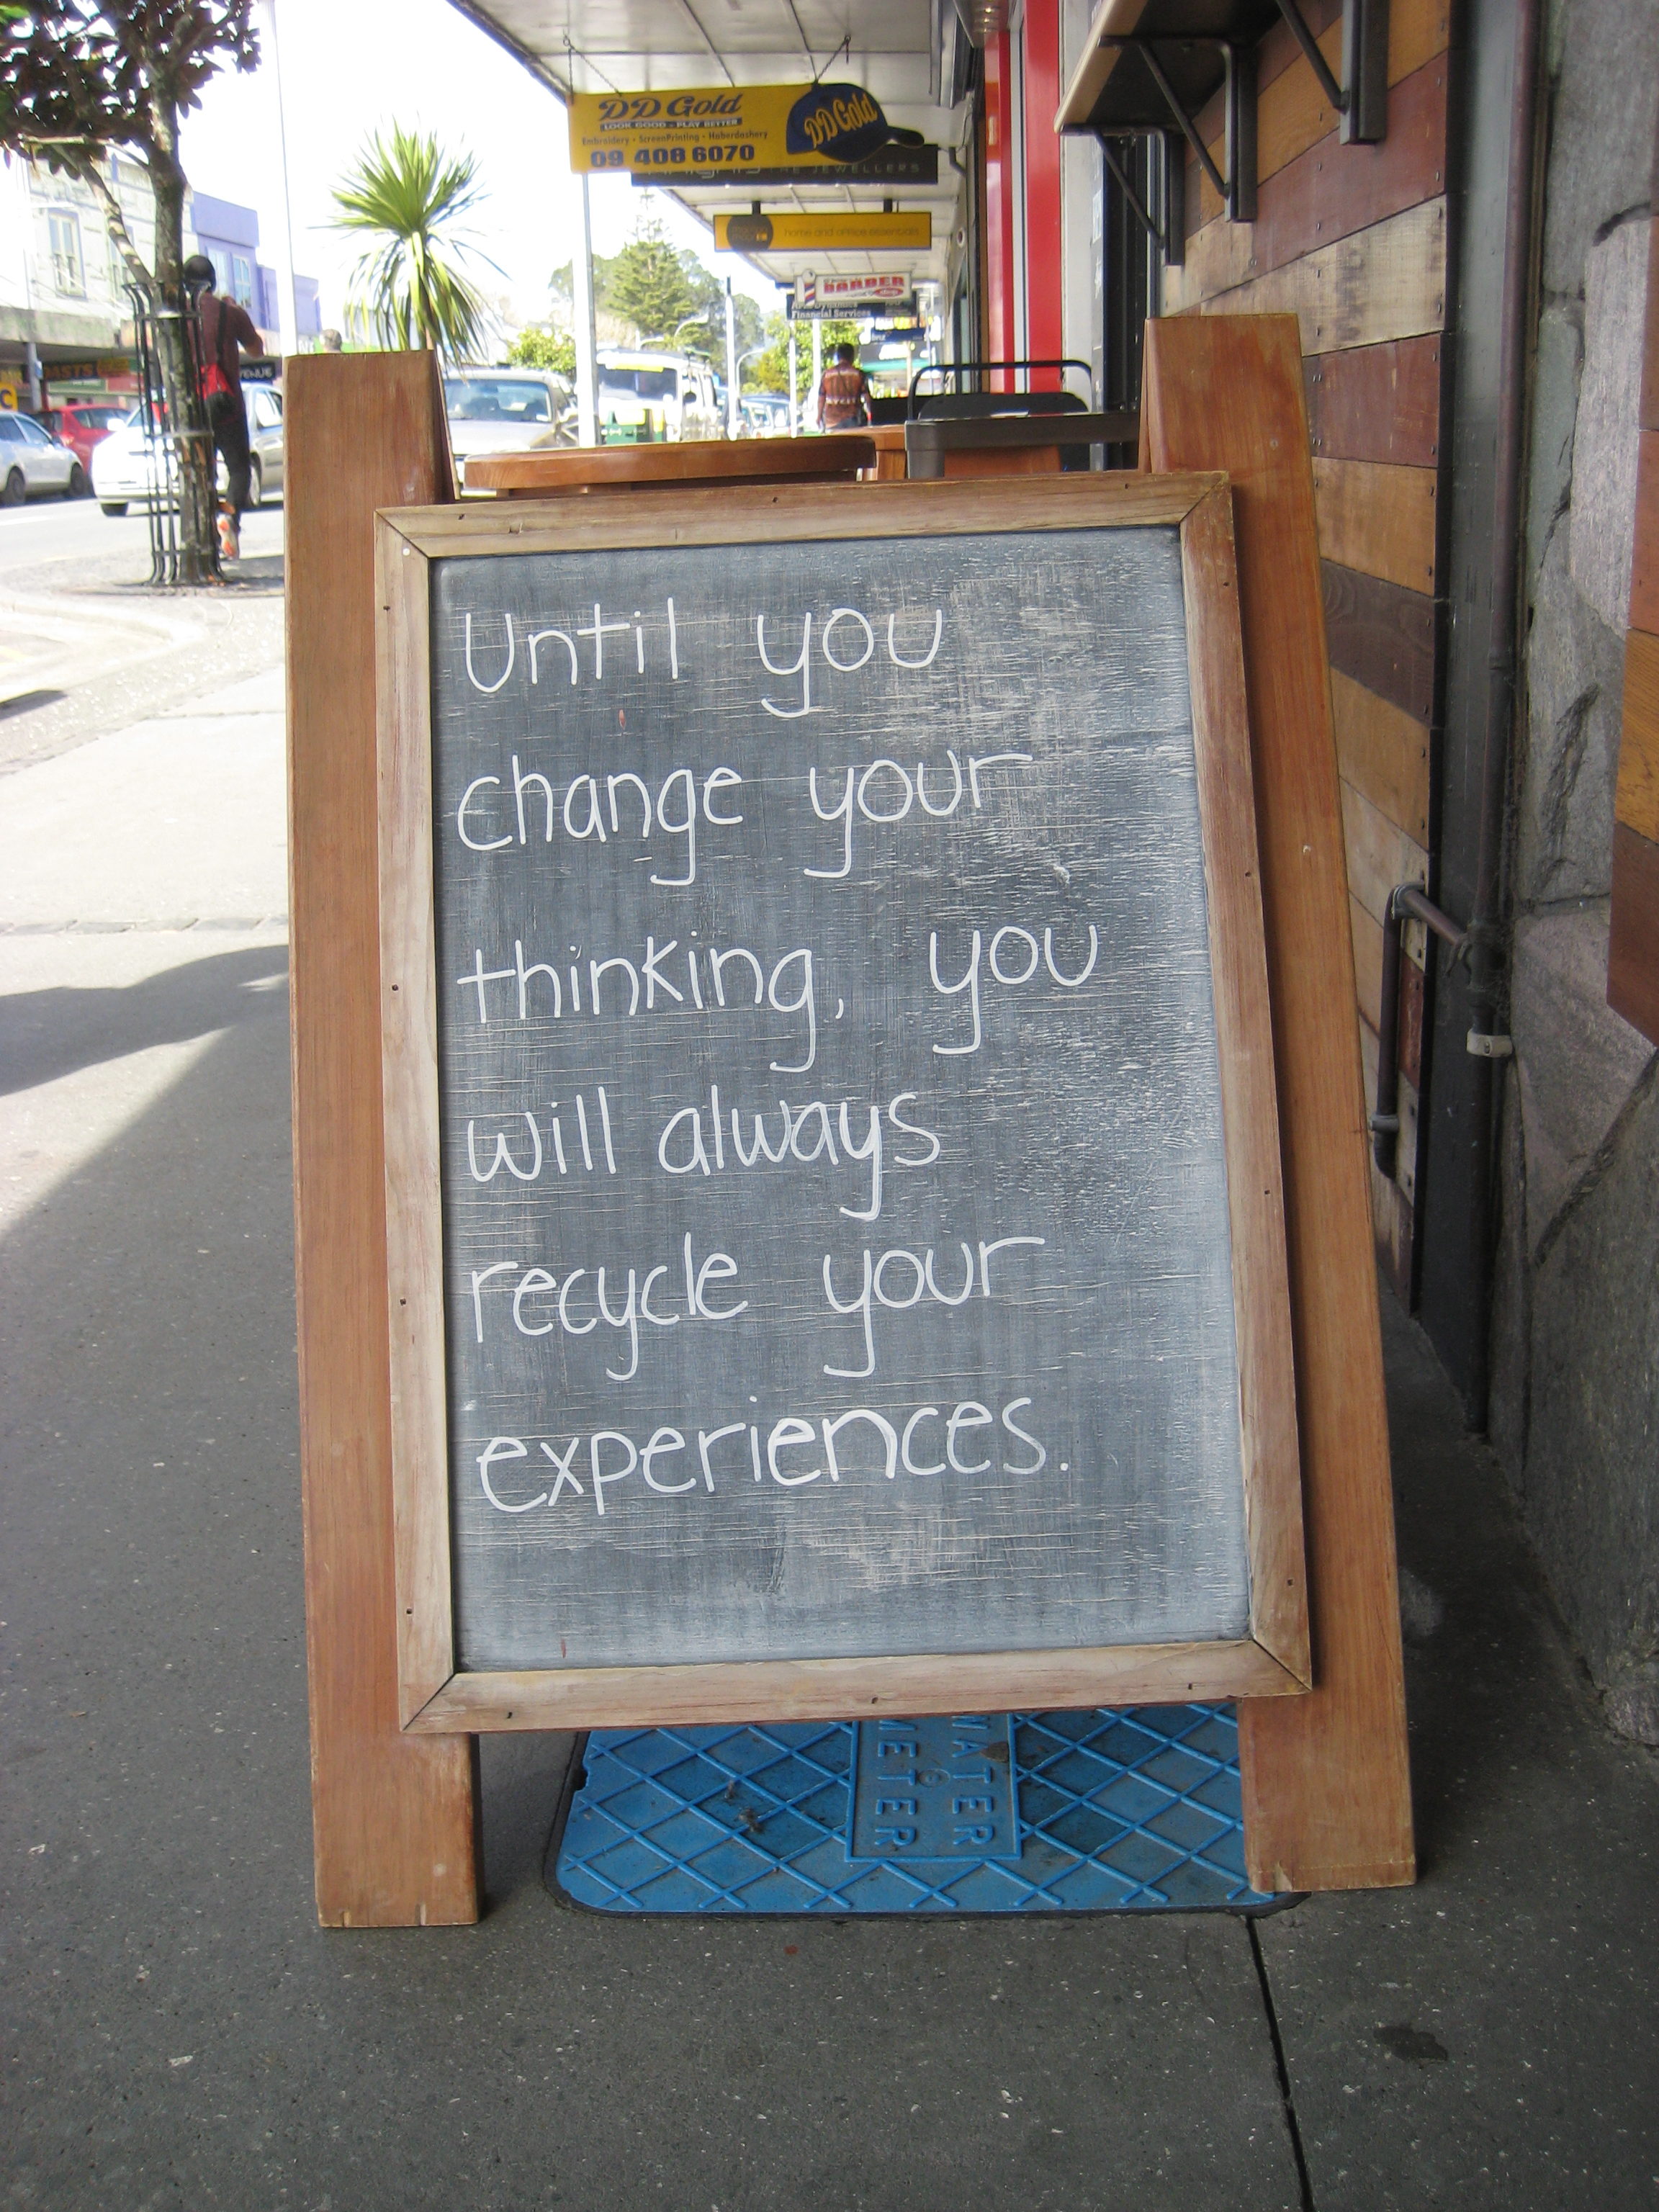 DD Gold
LOOK GOOD - PLAY BETTER
Embroidery • ScreenPrinting • Haberdashery
09 408 6070
DD Gold
THE JEWELLERS
home and office essentials
BARBER
Financial Services
Until you
change your
thinking, you
will always
recycle your
experiences.
WATER
METER